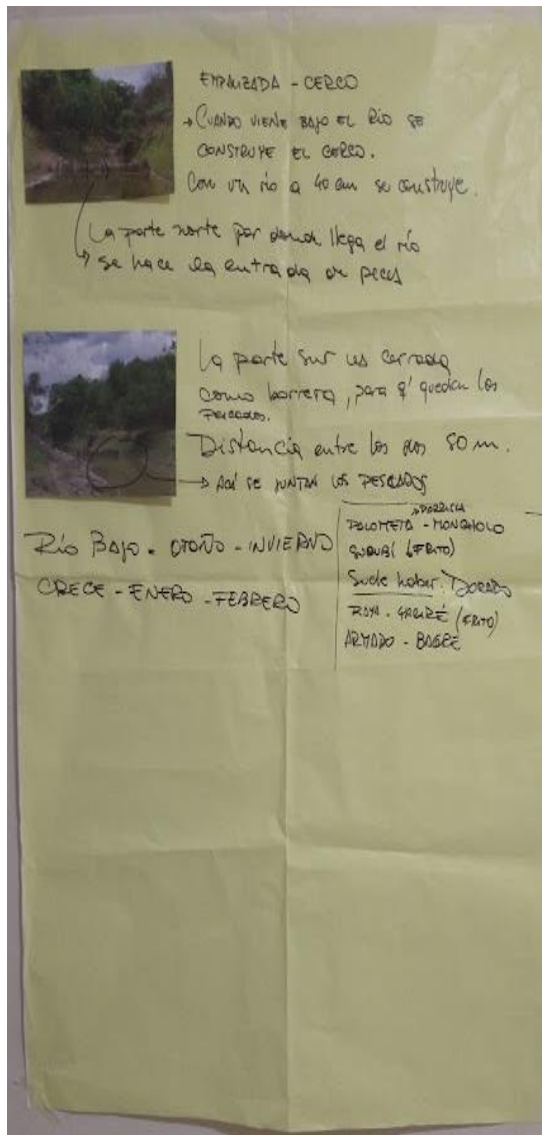 EMPALIZADA - CERCO
→ CUANDO VIENE BAJO EL RÍO SE
CONSTRUYE EL CERCO.
Con un río a 40 cm se construye.
La parte norte por donde llega el río
se hace la entrada de peces
La parte sur es cerrada
como barrera, para q' quedan los
PESCADOS.
Distancia entre los dos 80 m.
→ AQUÍ SE JUNTAN LOS PESCADOS
RÍO BAJO - OTOÑO - INVIERNO
CRECE - ENERO - FEBRERO
→ PARRILLA
PALOMETA - MONCHOLO
SURUBÍ (FRITO)
Suele haber: DORADO
RAYA - YACARÉ (FRITO)
ARMADO - BAGRE